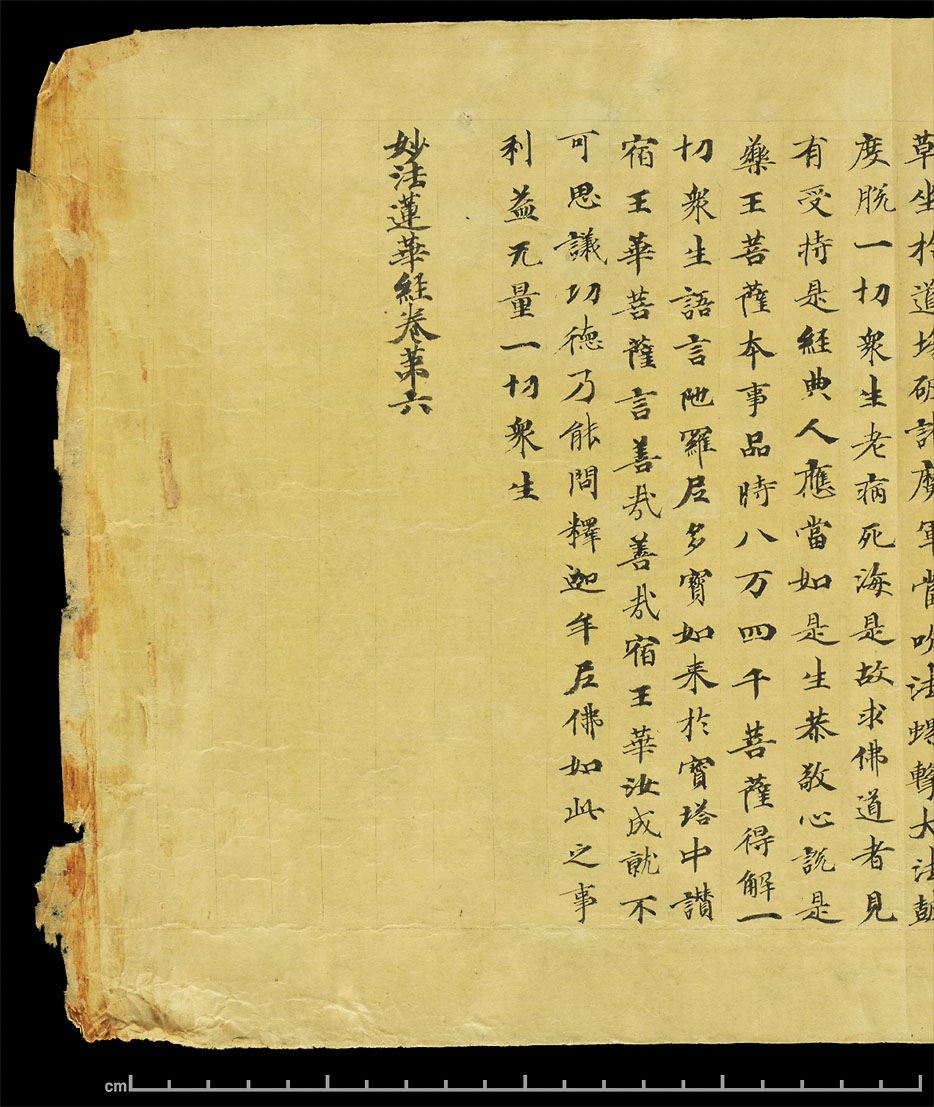 草坐於道場破諸魔軍當吹法螺擊大法鼓
度脫一切衆生老病死海是故求佛道者見
有受持是經典人應當如是生恭敬心說是
藥王菩薩本事品時八万四千菩薩得解一
切衆生語言陁羅尼多寶如来於寶塔中讚
宿王華菩薩言善㢤善㢤宿王華汝成就不
可思議功德乃能問釋迦牟尼佛如此之事
利益无量一切衆生
妙法蓮華經卷第六
cm